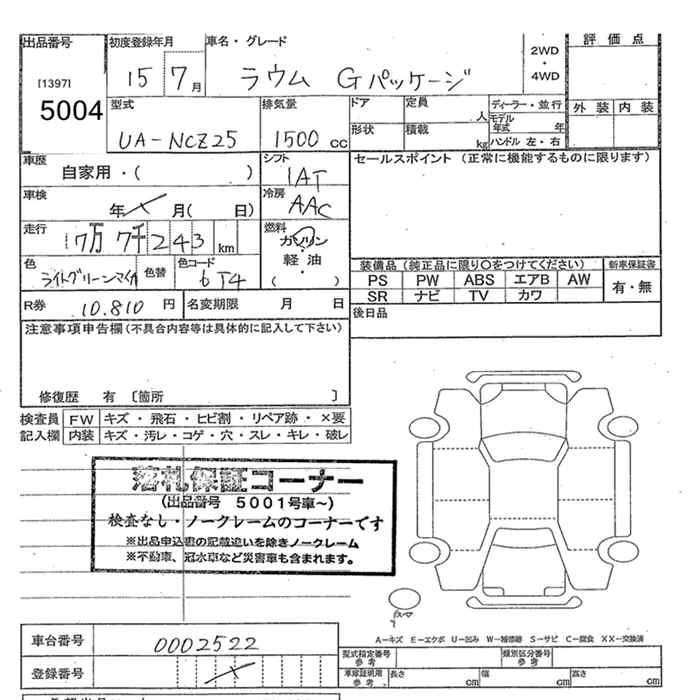 出品番号 初度登録年月 車名・グレード 評価点
[1397] 5004
15 7月 ラウム Gパッケージ 2WD・4WD
外装 内装
型式 排気量 ドア 定員 人 ディーラー・並行
UA-NCZ25 1500 cc 形状 積載 kg モデル年式 年
ハンドル 左・右
車歴 シフト セールスポイント (正常に機能するものに限ります)
自家用・( ) IAT
車検 冷房
年 月( 日) AAC
走行 燃料
17万 7千 243 km ガソリン・軽油・( )
色 色替 色コード
ライトグリーンマイカ 6T4
装備品 (純正品に限り○をつけてください) 新車保証書
PS PW ABS エアB AW 有・無
SR ナビ TV カワ
R券 10.810 円 名変期限 月 日 後日品
注意事項申告欄(不具合内容等は具体的に記入して下さい)
修復歴 有 [箇所 ]
検査員 FW キズ・飛石・ヒビ割・リペア跡・×要
記入欄 内装 キズ・汚レ・コゲ・穴・スレ・キレ・破レ
落札保証コーナー
(出品番号 5001号車~)
検査なし・ノークレームのコーナーです
※出品申込書の記載違いを除きノークレーム
※不動車、冠水車など災害車も含まれます。
A-キズ E-エクボ U-凹み W-補修跡 S-サビ C-腐食 XX-交換済
車台番号 0002522
型式指定番号 参考 類別区分番号 参考
登録番号
車庫証明用 参考 長さ cm 幅 cm 高さ cm